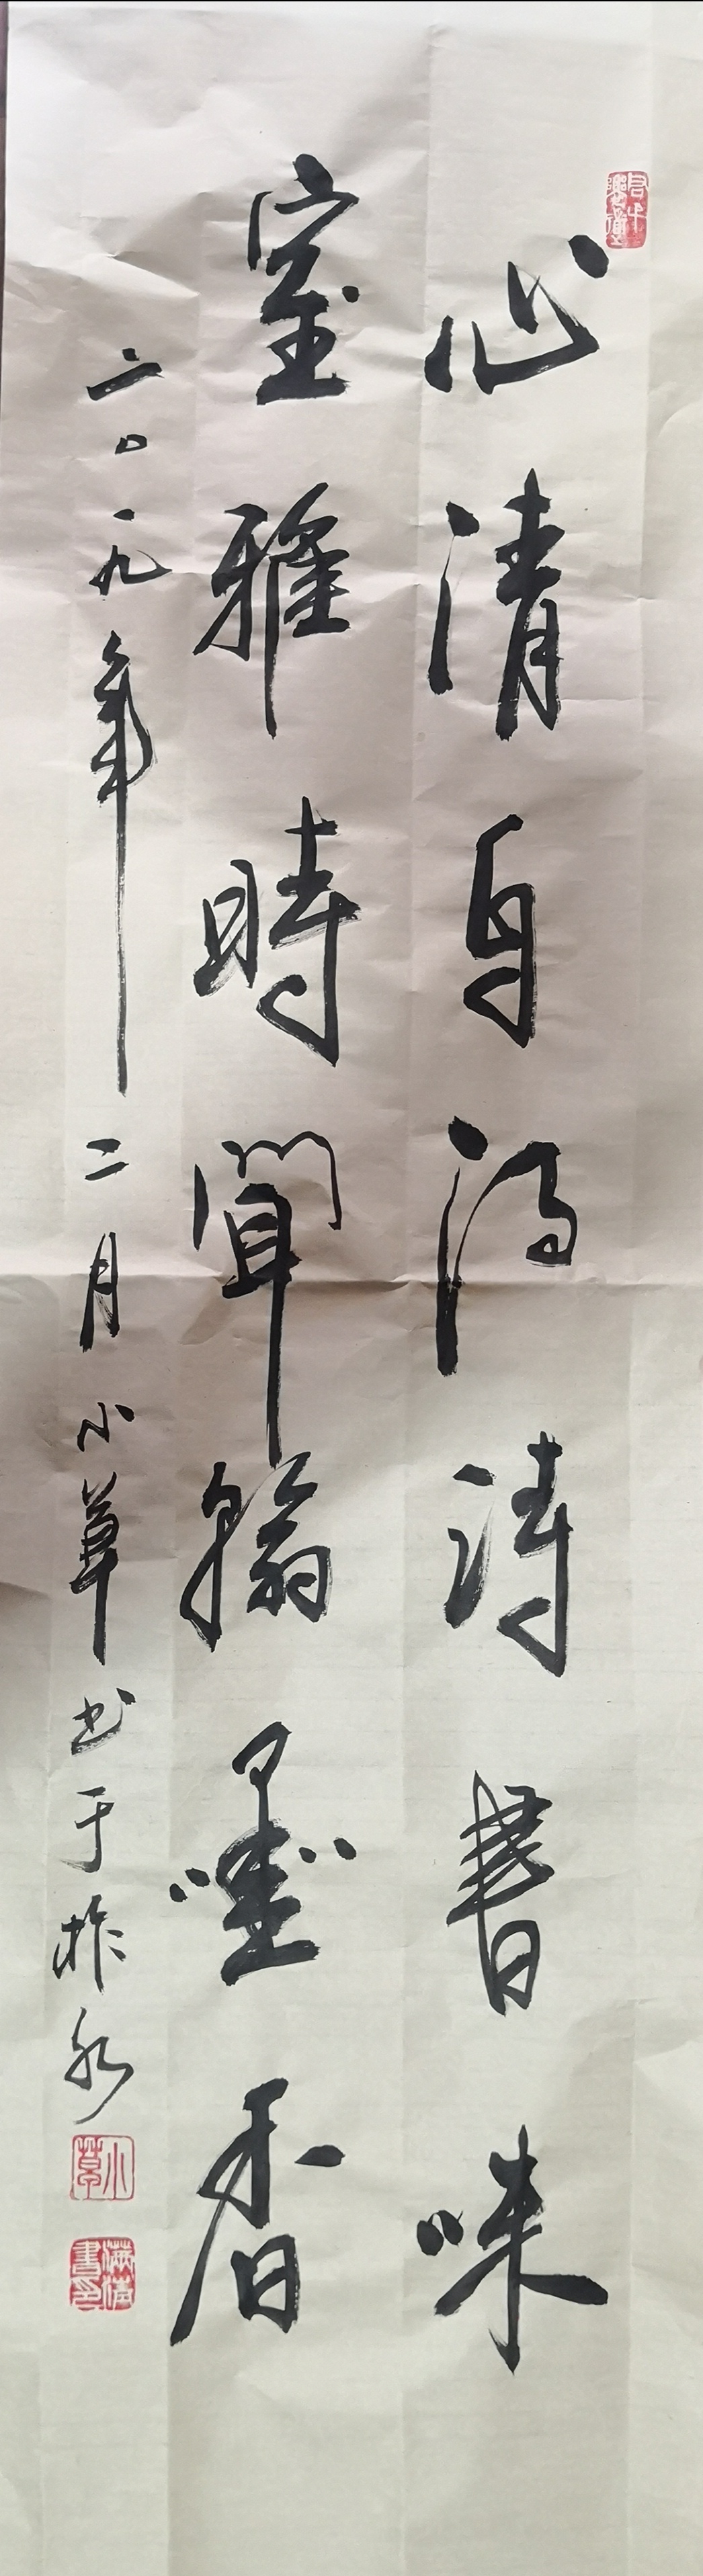 心清自得詩書味
室雅時聞翰墨香
二〇一九年二月小草书于柞水
小草